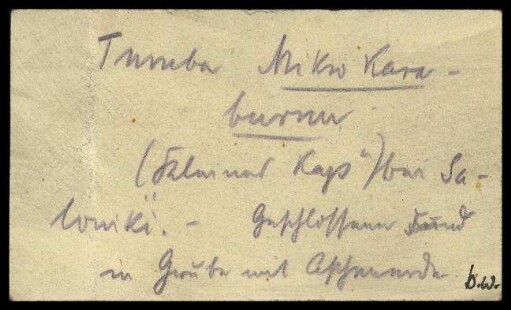 Tumba Mikro Kara-
burun.
(„Kleines Kap“) bei Sa-
loniki. – Geschlossener Fund
in Grube mit Aschenerde
b.w.